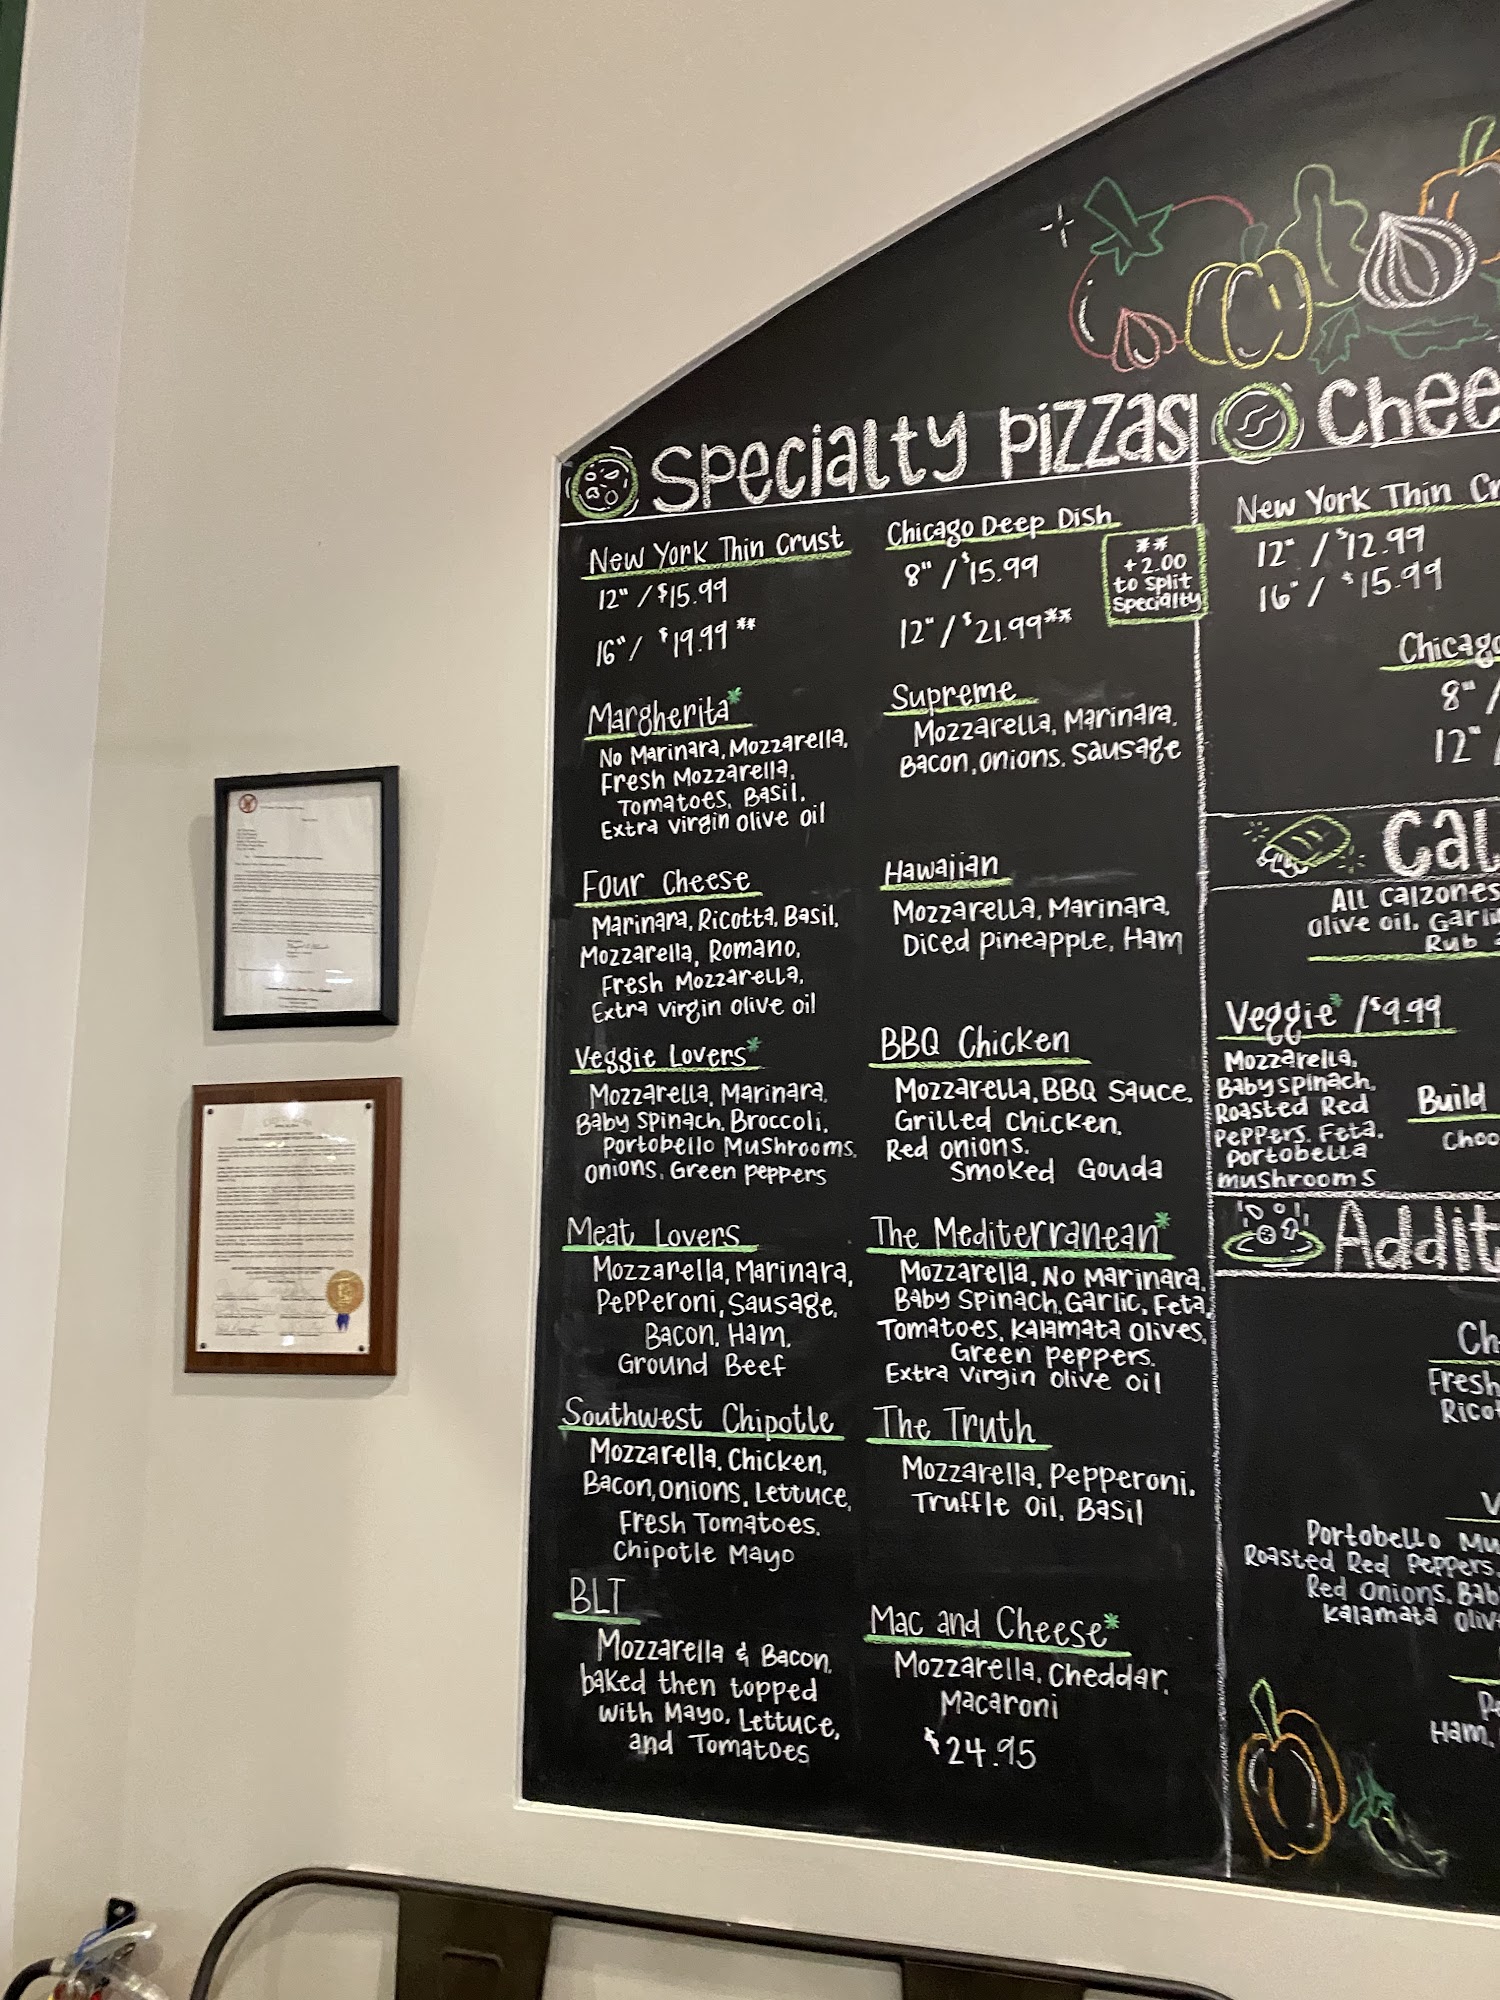 Specialty Pizzas
New York Thin Crust
12" / $15.99
16" / $19.99 **
Chicago Deep Dish
8" / $15.99
12" / $21.99**
**
+2.00
to split
specialty
Margherita*
No Marinara, Mozzarella,
Fresh Mozzarella,
Tomatoes, Basil,
Extra virgin olive oil
Four Cheese
Marinara, Ricotta, Basil,
Mozzarella, Romano,
Fresh Mozzarella,
Extra virgin olive oil
Veggie Lovers*
Mozzarella, Marinara,
Baby Spinach, Broccoli,
Portobello Mushrooms,
onions, Green peppers
Meat Lovers
Mozzarella, Marinara,
Pepperoni, Sausage,
Bacon, Ham,
Ground Beef
Southwest Chipotle
Mozzarella, Chicken,
Bacon, onions, Lettuce,
Fresh Tomatoes,
Chipotle Mayo
BLT
Mozzarella & Bacon,
baked then topped
with Mayo, Lettuce,
and Tomatoes
Supreme
Mozzarella, Marinara,
Bacon, onions, Sausage
Hawaiian
Mozzarella, Marinara,
Diced pineapple, Ham
BBQ Chicken
Mozzarella, BBQ Sauce,
Grilled Chicken,
Red onions,
Smoked Gouda
The Mediterranean*
Mozzarella, No Marinara,
Baby Spinach, Garlic, Feta,
Tomatoes, Kalamata olives,
Green peppers,
Extra virgin olive oil
The Truth
Mozzarella, Pepperoni,
Truffle oil, Basil
Mac and Cheese*
Mozzarella, Cheddar,
Macaroni
$24.95
Chee
New York Thin Cr
12" / $12.99
16" / $15.99
Chicago
8" /
12" /
Cal
All Calzones
olive oil, Garli
Rub
Veggie* / $9.99
Mozzarella,
Baby spinach,
Roasted Red
peppers, Feta,
portobella
mushrooms
Build
Choo
Addit
Ch
Fresh
Ricot
V
Portobello Mu
Roasted Red Peppers,
Red onions, Bab
Kalamata oliv
Pe
Ham,